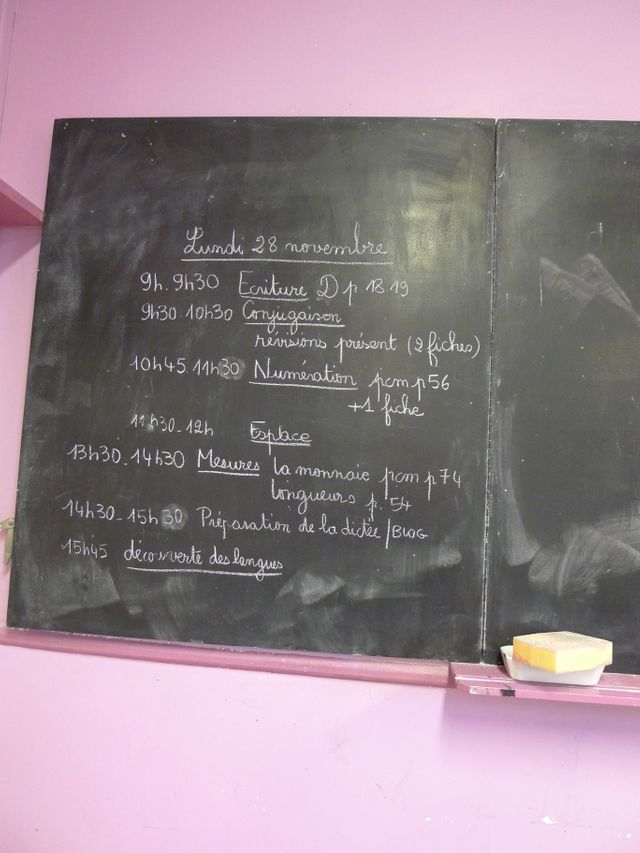 Lundi 28 novembre
9h. 9h30 Ecriture D p 18 19
9h30. 10h30 Conjugaison
révisions présent (2 fiches)
10h45. 11h30 Numération pcm p56
+1 fiche
11h30_12h Espace
13h30_14h30 Mesures la monnaie pcm p74
longueurs p. 54
14h30_15h30 Préparation de la dictée/BLOG
15h45 découverte des langues